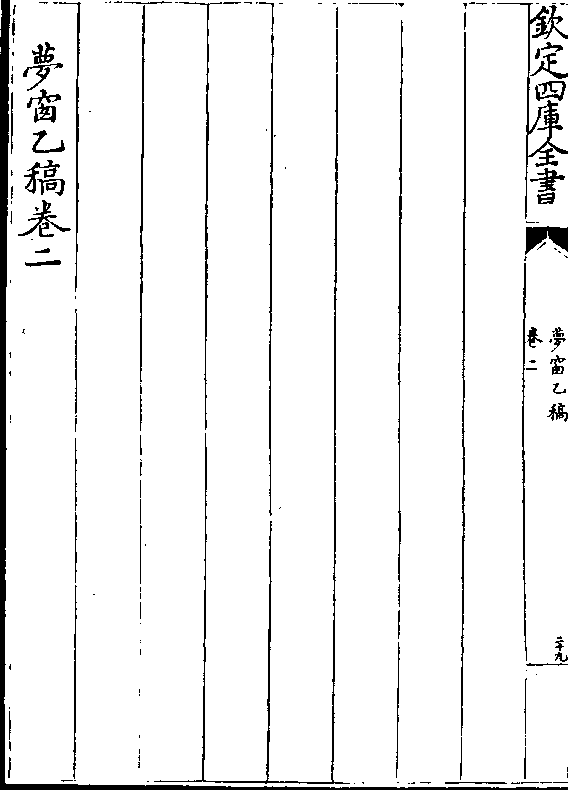 欽定四庫全書
夢窗乙稿
卷二
二十九
夢窗乙稿卷二